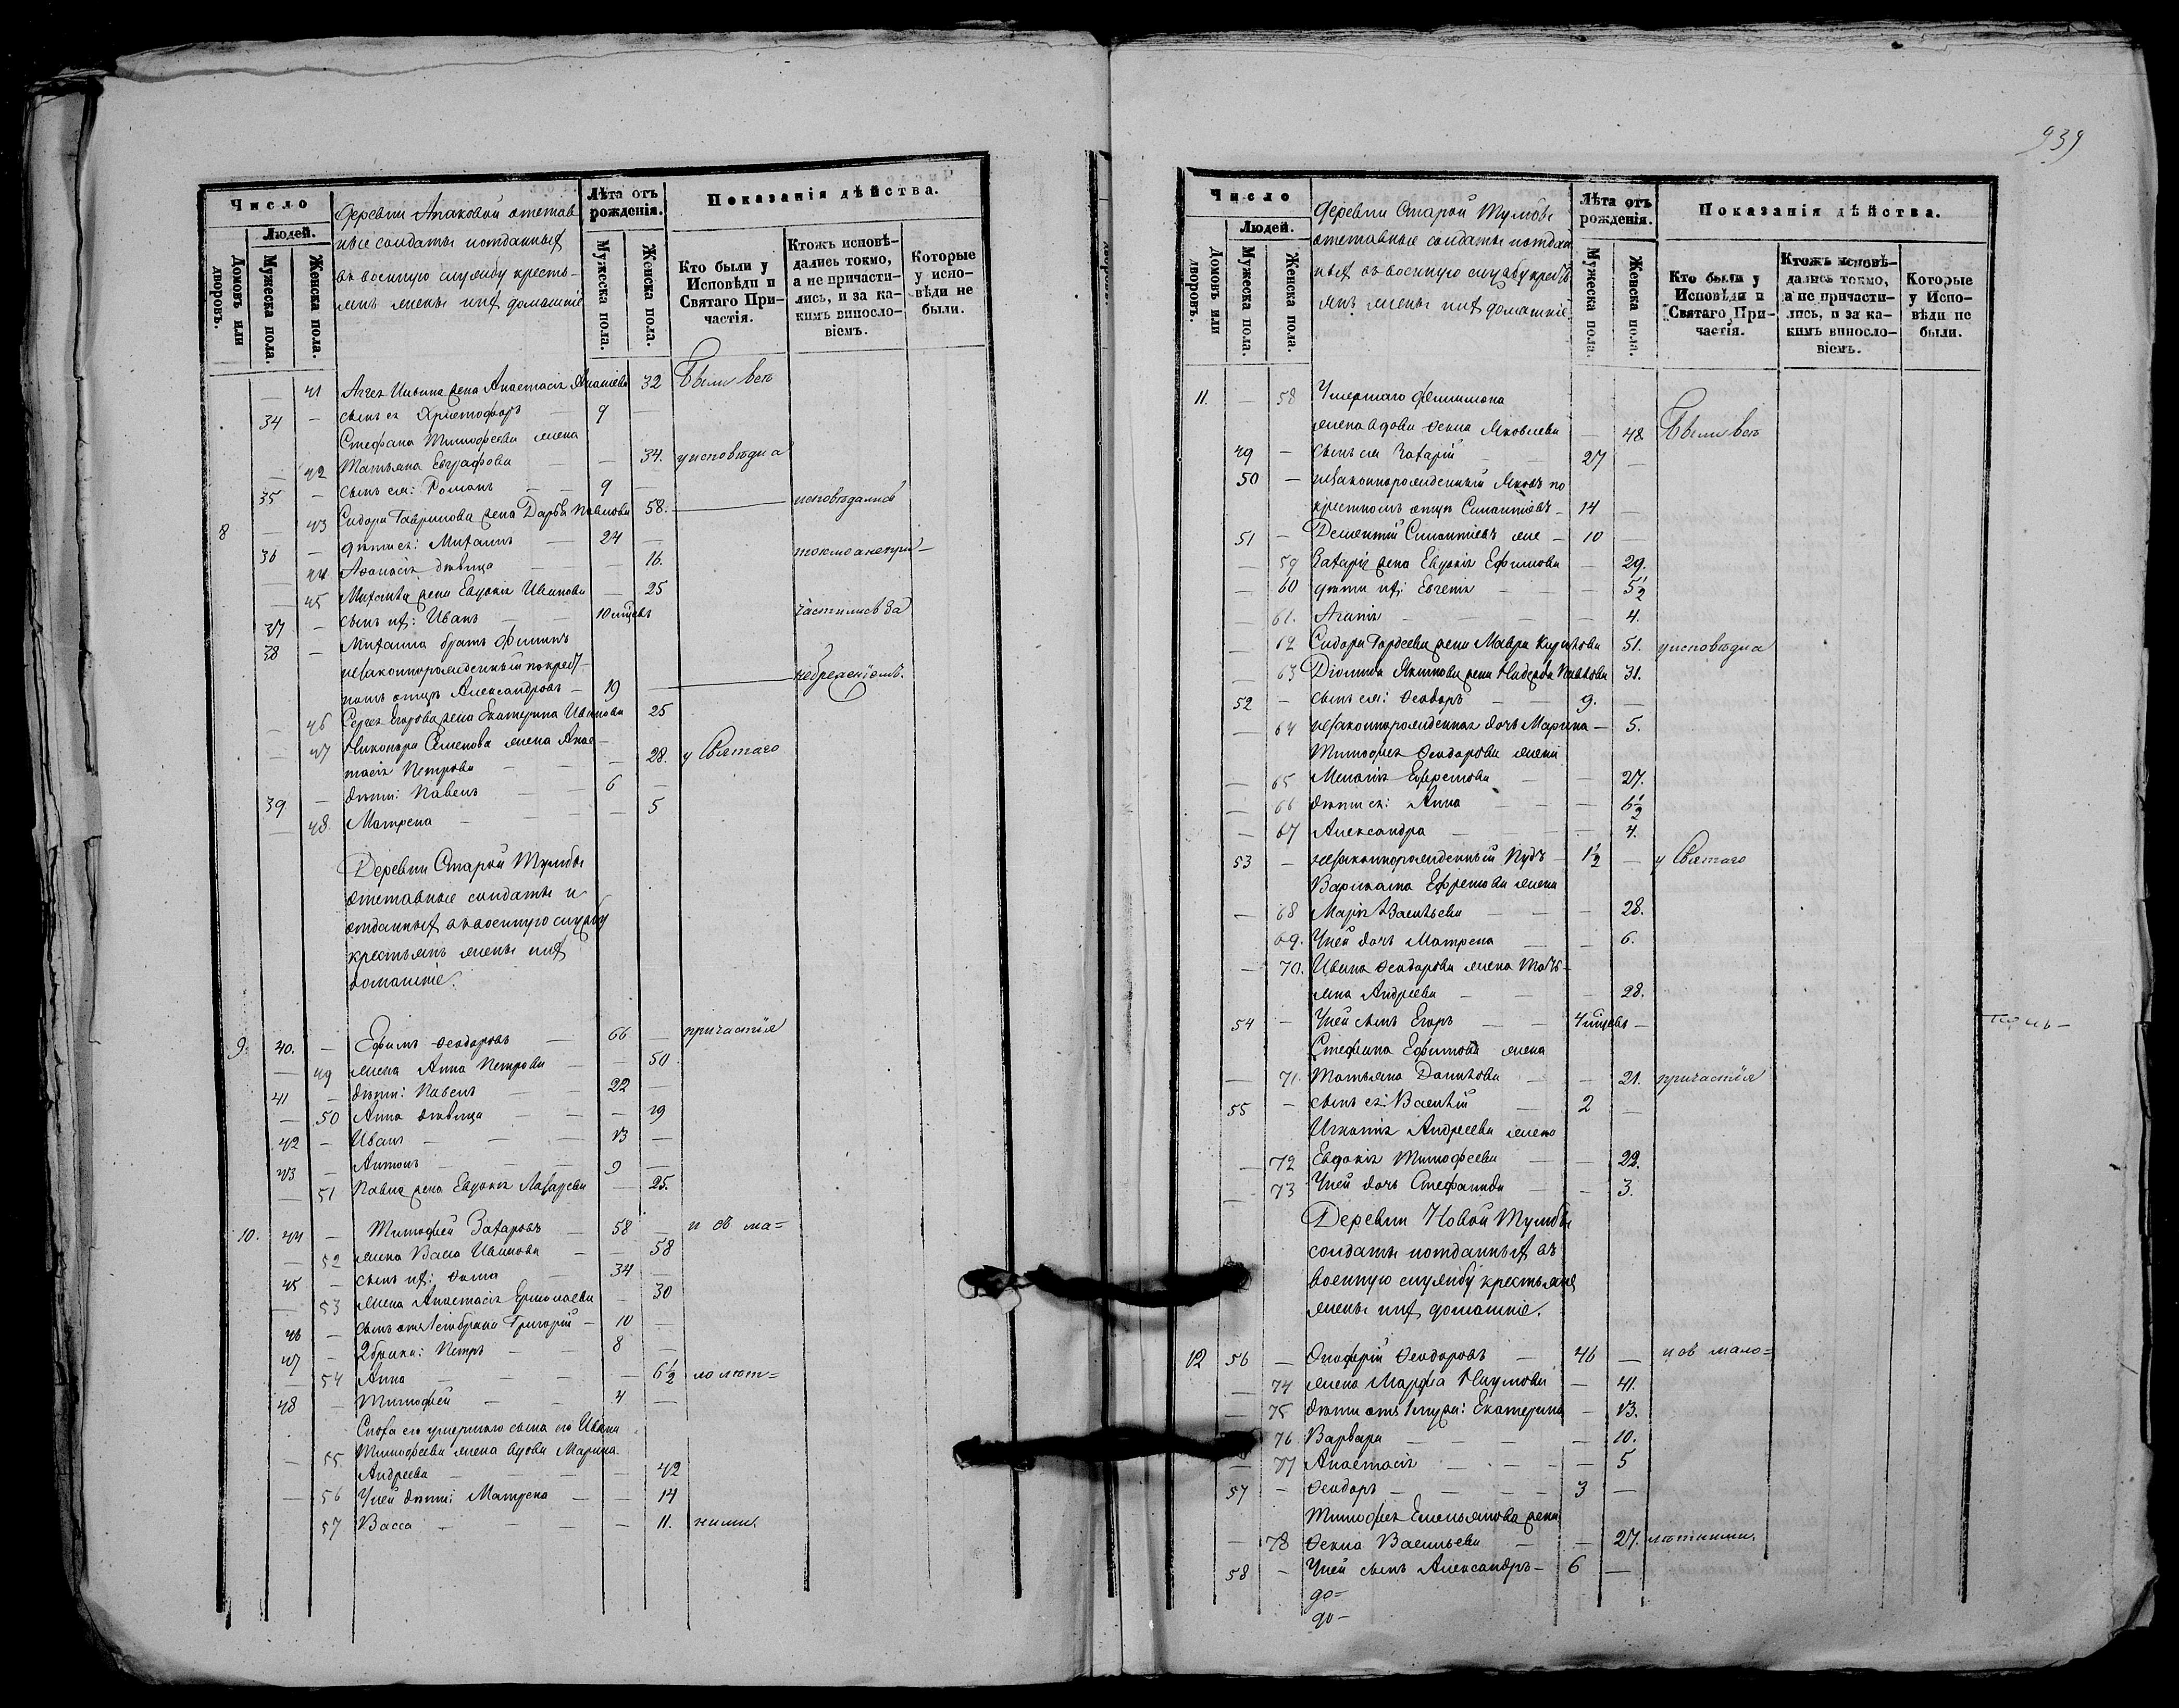 939
Число
Людей.
Домовъ или дворовъ.
Мужеска пола.
Женска пола.
Деревни Апаковой отстав
ные солдаты иотданныхъ
въ военную службу кресть-
янъ жены ихъ домашніе
Лѣта отъ рожденія.
Мужеска пола.
Женска пола.
Показанія дѣйства.
Кто были у Исповѣди и Святаго При-частія.
Ктожъ исповѣ-дались токмо, а не причасти-лись, и за ка-кимъ винosло-віемъ.
Которые у испо-вѣди не были.
— 41 жена Анастасія Ананіева 32 Были всѣ
34 — сынъ ея Христофоръ — 9 —
Стефана Тимофеева жена
— 42 Татьяна Евграфова — — 34. уисповѣди а
35 — сынъ ея: Романъ — 9 —
8 — 43 Сидора Гаврилова жена Дарья Павлова 58. — исповѣдались
36 — дѣти ея: Михаилъ — 24 —
— 44 Афанасія дѣвица — — 16. токмо а непри-
— 45 Михаила жена Евдокія Иванова — 25
37 — сынъ ихъ: Иванъ — 10 мѣсяцъ частились за
38 — Михаила братъ Филипъ
незаконнорожденный по крест-
номъ отцѣ Александровъ — 19 — небреженіемъ.
— 46 Сергея Егорова жена Екатерина Иванова 25
— 47 Никонора Семенова жена Анас-
тасія Петрова — — 28. у Святаго
39 — дѣти: Павелъ — 6 —
— 48. Матрена — — — 5
Деревни Старой Тумбы
отставные солдаты и
отданныхъ въ военную службу
крестьянъ жены ихъ
домашніе.
9. 40. — Ефимъ Феодоровъ — 66 — причастія
— 49 жена Анна Петрова — — 50
41 — дѣти: Павелъ — 22 —
— 50 Анна дѣвица — — 19
42 — Иванъ — — 13 —
43 — Антонъ — 9 —
— 51 Павла жена Евдокія Лазарева — 25.
10. 44 — Тимофей Захаровъ — 58 — и съ ма=
— 52 жена Васса Иванова — — 58
45 — сынъ ихъ: Фома 34 —
— 53 жена Анастасія Ермолаева — 30
46 — сынъ отъ 1го брака Григорій — 10 —
47 — 2 брака: Петръ — 8 —
— 54 Анна — — — 6½ лолѣт=
48 — Тимофей — — 4 —
Сноха его умершаго сына его Ивана
— 55 Тимофеева жена вдова Марина
Андреева — — 42
— 56 Уней дѣти: Матрена — — 14
57 Васса — — — 11. ними.
Число
Людей.
Домовъ или дворовъ.
Мужеска пола.
Женска пола.
Деревни Старой Тумбы
отставные солдаты иотдан
ныхъ въ военную службу кресть
янъ жены ихъ домашніе.
Лѣта отъ рожденія.
Мужеска пола.
Женска пола.
Показанія дѣйства.
Кто были у Исповѣди и Святаго При-частія.
Ктожъ исповѣ-дались токмо, а не причасти-лись, и за ка-кимъ винocло-віемъ.
Которые у Испо-вѣди не были.
11. — 58 Умершаго Филимона
жена вдова Фекла Яковлева — 48 Были всѣ
49 — сынъ ея Захарій — 27 —
50 — незаконнорожденный Яковъ по
крестномъ отцѣ — 14 —
51 — Дементій — 10 —
— 59 Захарія жена Евдокія Ефимова — 29.
— 60 дѣти ихъ: Евгенія — — 5½
— 61. Агапія — — 4.
— 62 Сидора Гордеева жена Мавра Кирилова 51. уисповѣди а
— 63 Діомида Якимова жена Надежда Павлова 31.
52 — сынъ ея: Феодоръ — 9. —
— 64 незаконнорожденная дочь Марина — 5.
Тимофея Феодорова жена
— 65 Меланія Ефремова — — 27.
— 66 дѣти ея: Анна — — 6½
— 67 Александра — — 4.
53 — незаконнорожденный Пудъ — 1½ — у Святаго
Варлаама Ефремова жена
— 68 Марія Васильева — — 28.
69. Уней дочь Матрена — — 6.
— 70. Ивана Феодорова жена Тать-
яна Андреева — — 28.
54 — Уней сынъ Егоръ — 4 мѣсяцъ —
Стефана Ефимова жена
— 71. Татьяна Данилова — — 21. причастія
55 — сынъ ея: Василій — 2 —
Игнатія Андреева жена
— 72 Евдокія Тимофеева — — 22.
— 73 Уней дочь Стефанида — 3.
Деревни Новой Тумбы
солдаты иотданныхъ въ
военную службу крестьянъ
жены ихъ домашніе.
12 56 — Онофрій Феодоровъ — 46 — и съ мало=
— 74 жена Марфа Наумова — 41.
— 75 дѣти отъ 1 мужа: Екатерина — 13.
76 Варвара — — — 10.
— 77 Анастасія — — — 5
57 — Феодоръ — — 3 —
Тимофея Емельянова жена
— 78 Фекла Васильева — — 27. лѣтними.
58 — Уней сынъ Александръ — 6 —
до=
до-